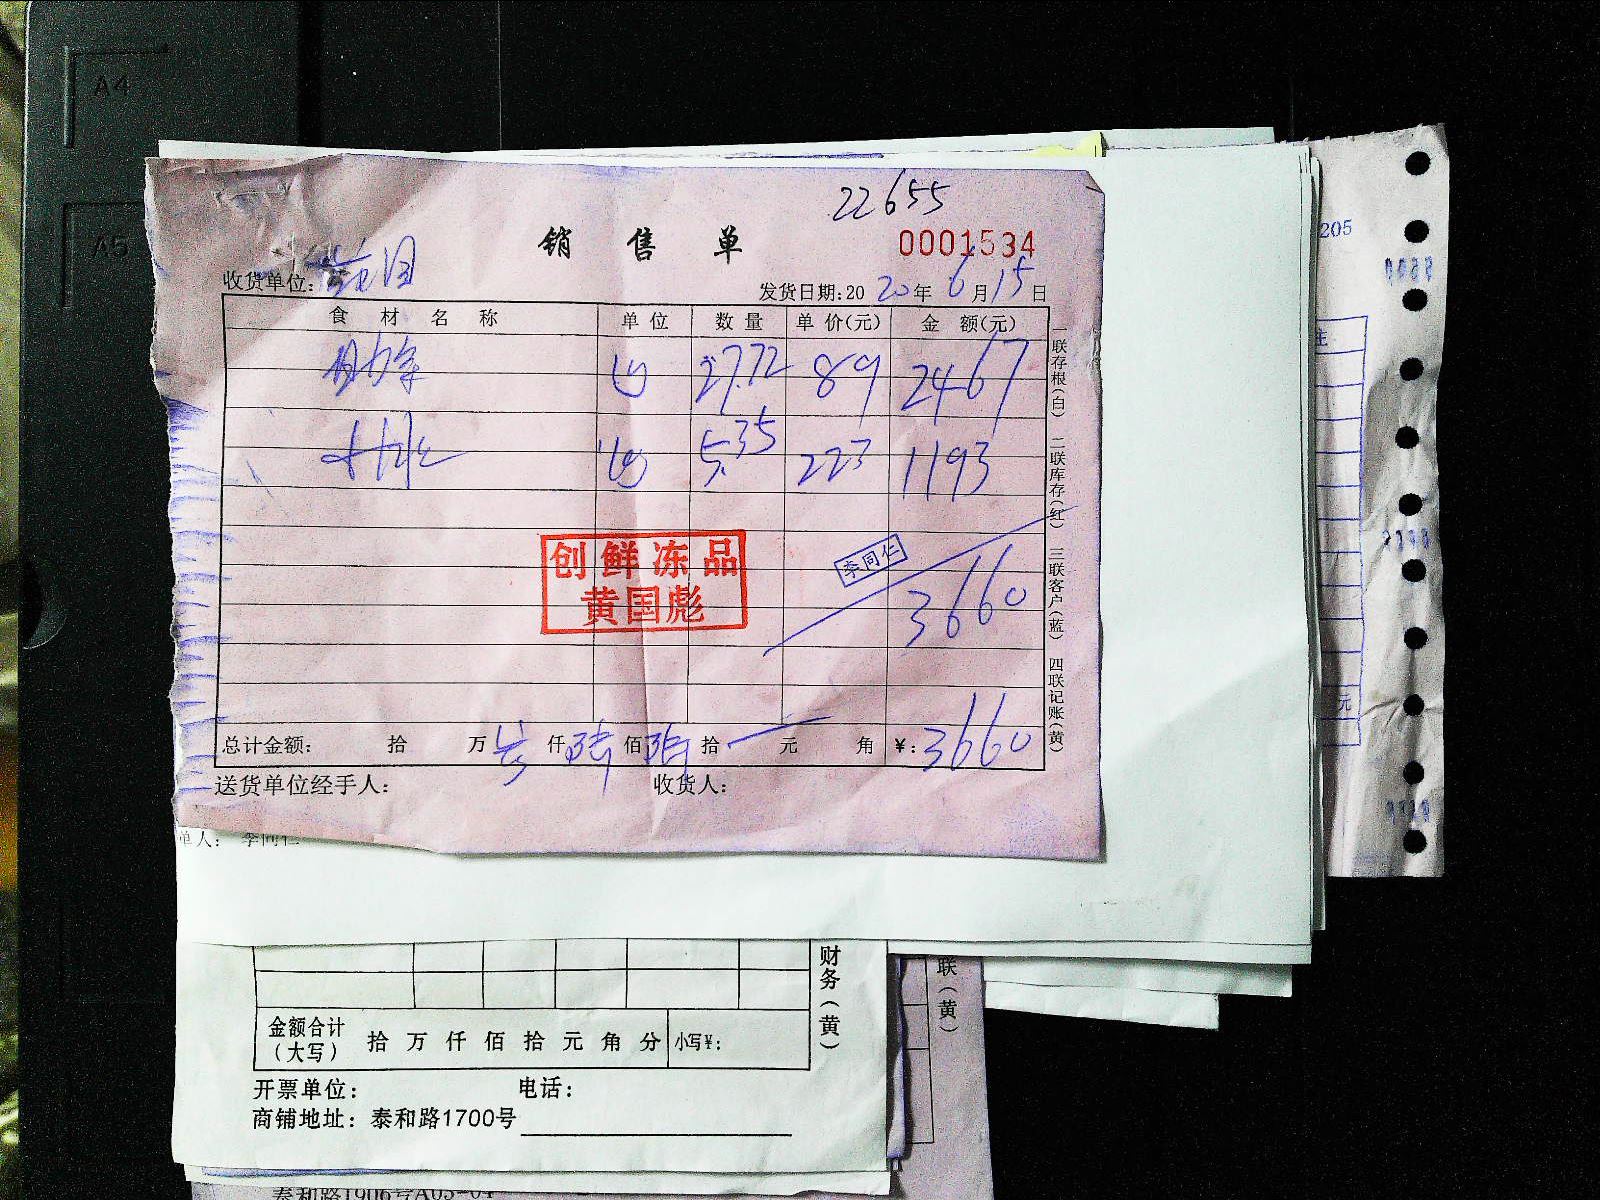 A4
A5
22655
销售单
0001534
收货单位：
发货日期:2020年6月15日
食材名称 单位 数量 单价(元) 金额(元)
27.72 89 2467
5.35 223 1193
创鲜冻品
黄国彪
李同仁
3660
总计金额： 拾 万 仟 陆 佰 陆 拾 元 角 ¥:3660
送货单位经手人： 收货人：
一联存根(白) 二联库存(红) 三联客户(蓝) 四联记账(黄)
205
元
单人： 李同仁
财务(黄)
联(黄)
金额合计
(大写) 拾 万 仟 佰 拾 元 角 分 小写¥:
开票单位： 电话：
商铺地址：泰和路1700号
泰和路1906号A03-04